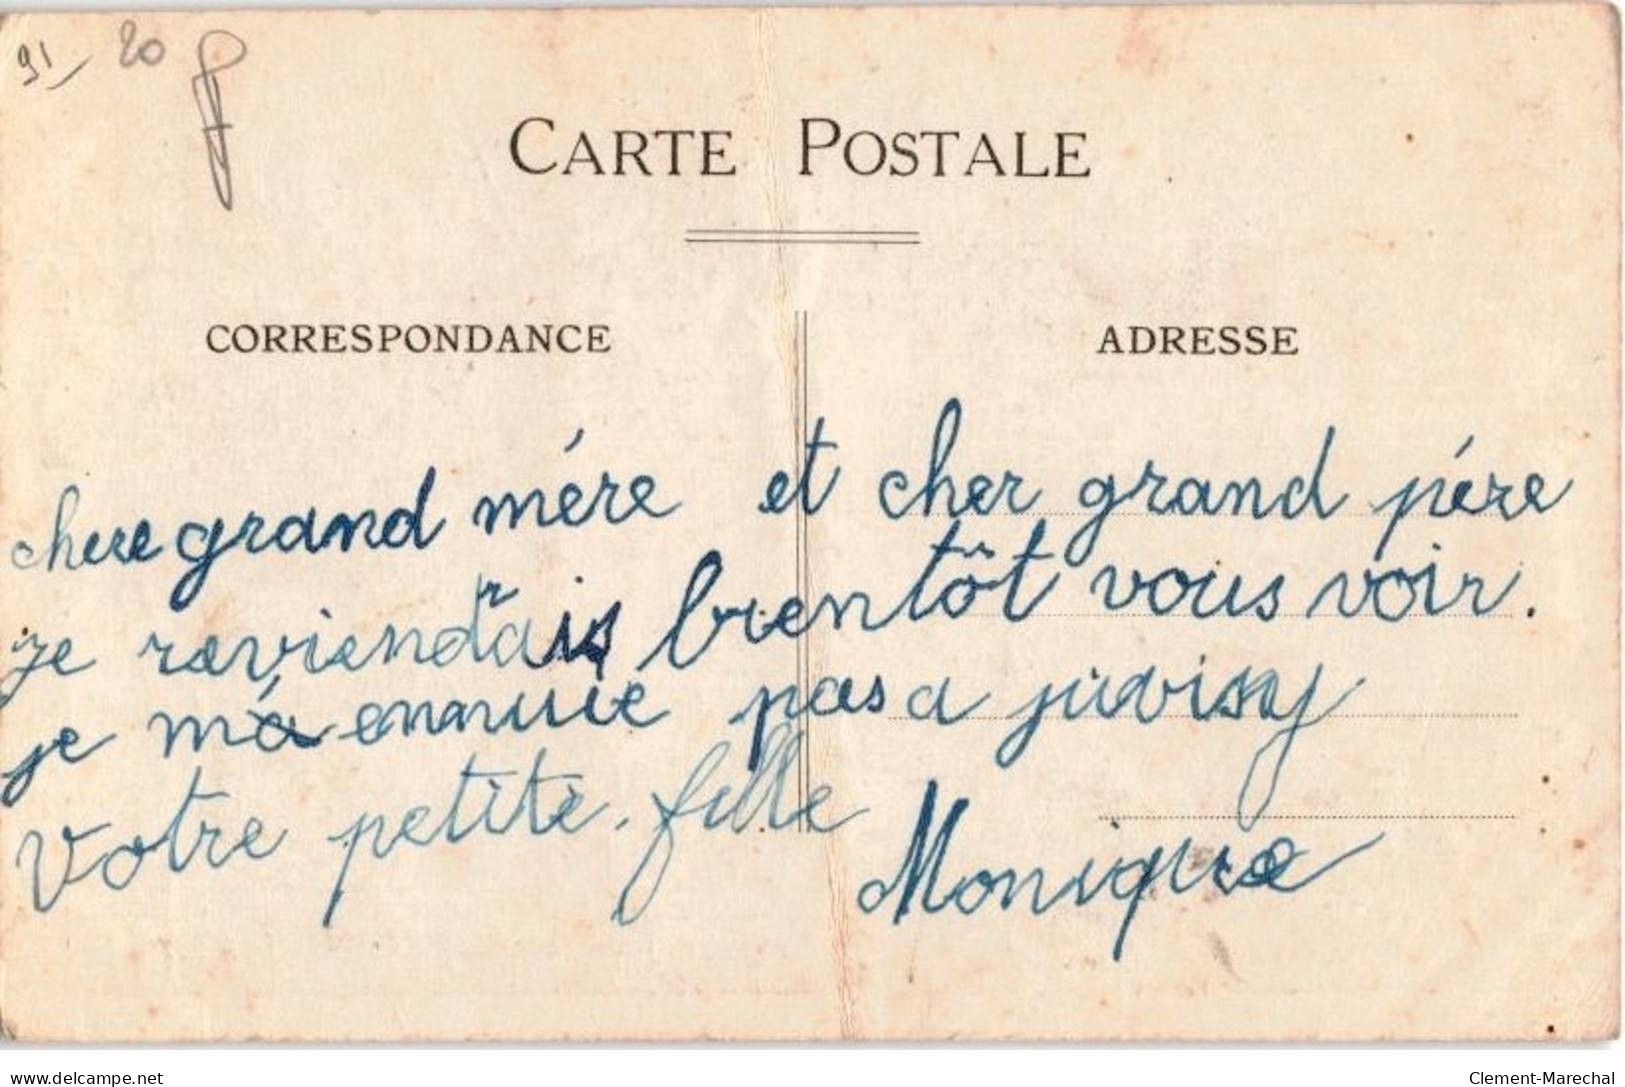 91 20
CARTE POSTALE
CORRESPONDANCE ADRESSE
chere grand mére et cher grand pére
je reviendrais bientôt vous voir.
je m'ennuie pas a juvisy
Votre petite. fille Monique
delcampe.net
Clement-Marechal